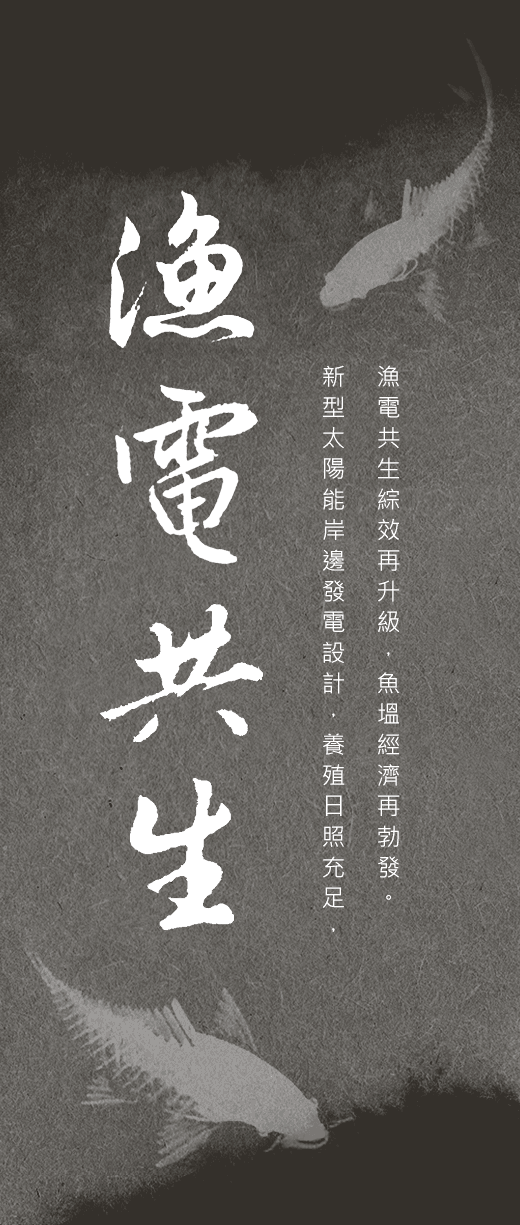 漁電共生
新型太陽能岸邊發電設計，養殖日照充足，
漁電共生綜效再升級，魚塭經濟再勃發。